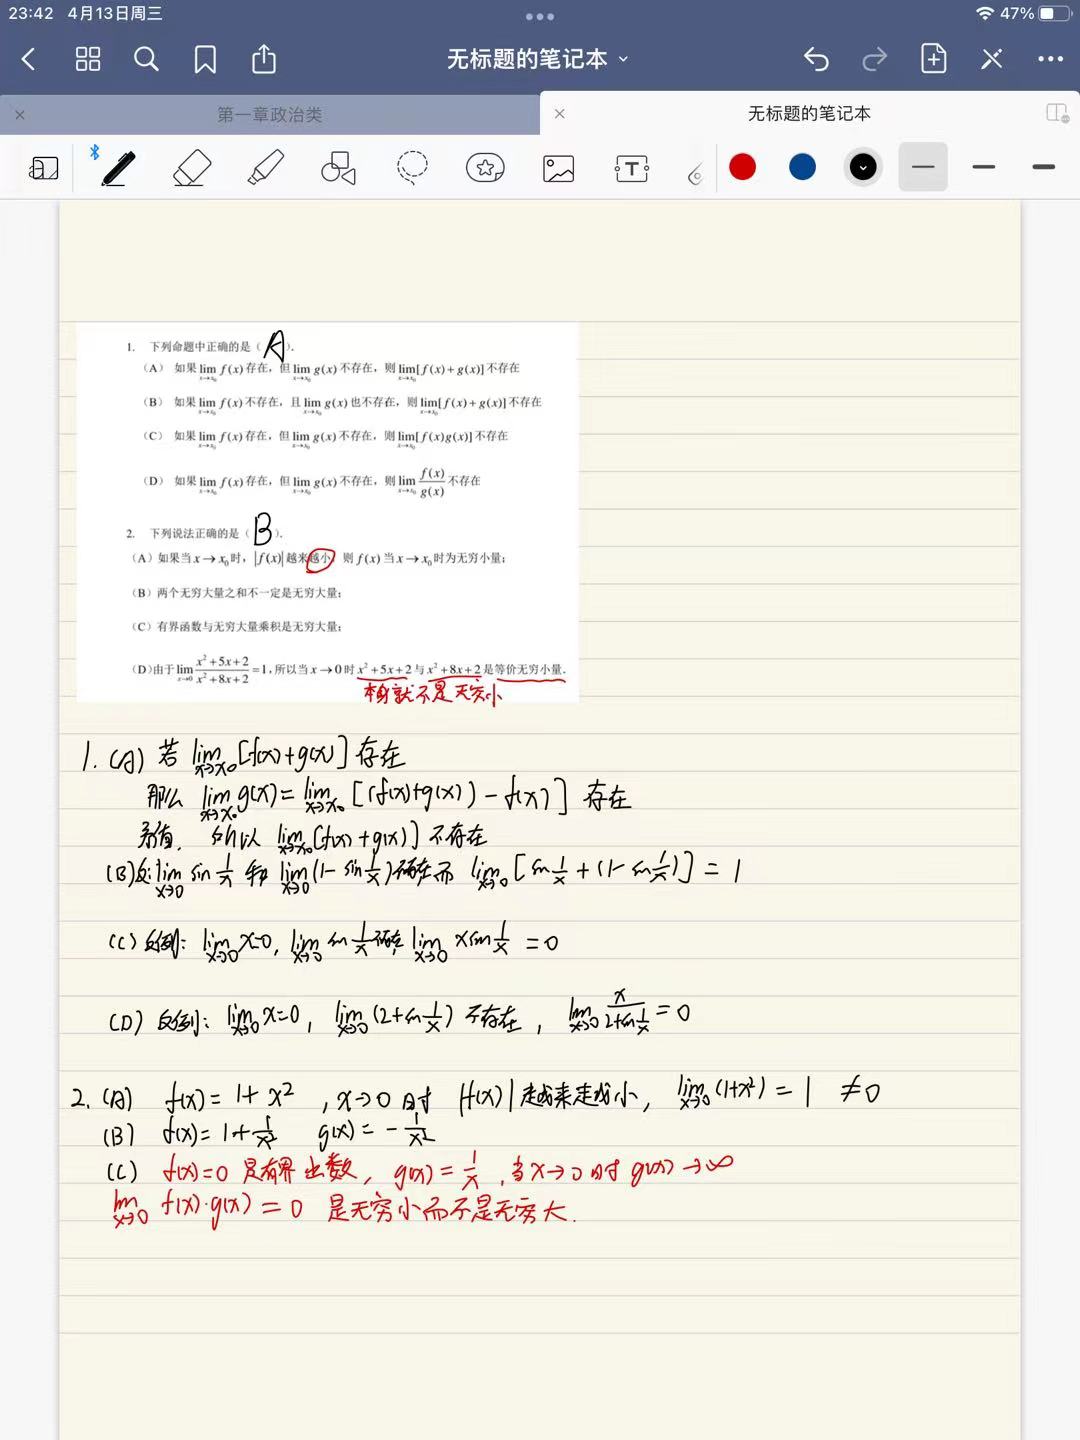 23:42 4月13日周三
47%
无标题的笔记本
第一章政治类
无标题的笔记本
1. 下列命题中正确的是（ A ）.
（A） 如果 lim x→x₀ f(x) 存在，但 lim x→x₀ g(x) 不存在，则 lim x→x₀ [f(x)+g(x)] 不存在
（B） 如果 lim x→x₀ f(x) 不存在，且 lim x→x₀ g(x) 也不存在，则 lim x→x₀ [f(x)+g(x)] 不存在
（C） 如果 lim x→x₀ f(x) 存在，但 lim x→x₀ g(x) 不存在，则 lim x→x₀ [f(x)g(x)] 不存在
（D） 如果 lim x→x₀ f(x) 存在，但 lim x→x₀ g(x) 不存在，则 lim x→x₀ f(x)/g(x) 不存在
2. 下列说法正确的是（ B ）.
（A）如果当 x→x₀ 时，|f(x)| 越来越小，则 f(x) 当 x→x₀ 时为无穷小量；
（B）两个无穷大量之和不一定是无穷大量；
（C）有界函数与无穷大量乘积是无穷大量；
（D）由于 lim x→0 (x²+5x+2)/(x²+8x+2) =1，所以当 x→0 时 x²+5x+2 与 x²+8x+2 是等价无穷小量.
本身就不是无穷小
1. (A) 若 lim x→x₀ [f(x)+g(x)] 存在
那么 lim x→x₀ g(x) = lim x→x₀ [(f(x)+g(x)) - f(x)] 存在
矛盾，所以 lim x→x₀ [f(x)+g(x)] 不存在
(B) 反: lim x→0 sin 1/x 和 lim x→0 (1- sin 1/x) 不存在 而 lim x→0 [sin 1/x + (1- sin 1/x)] = 1
(C) 反例: lim x→0 x=0, lim x→0 sin 1/x 不存在 lim x→0 x sin 1/x = 0
(D) 反例: lim x→0 x=0, lim x→0 (2+sin 1/x) 不存在, lim x→0 x/(2+sin 1/x) = 0
2. (A) f(x) = 1+ x² , x→0 时 |f(x)| 越来越小, lim x→0 (1+x²) = 1 ≠0
(B) f(x) = 1+ 1/x² g(x) = - 1/x²
(C) f(x)=0 是有界函数, g(x) = 1/x , 当 x→0 时 g(x) →∞
lim x→0 f(x)·g(x) = 0 是无穷小而不是无穷大.